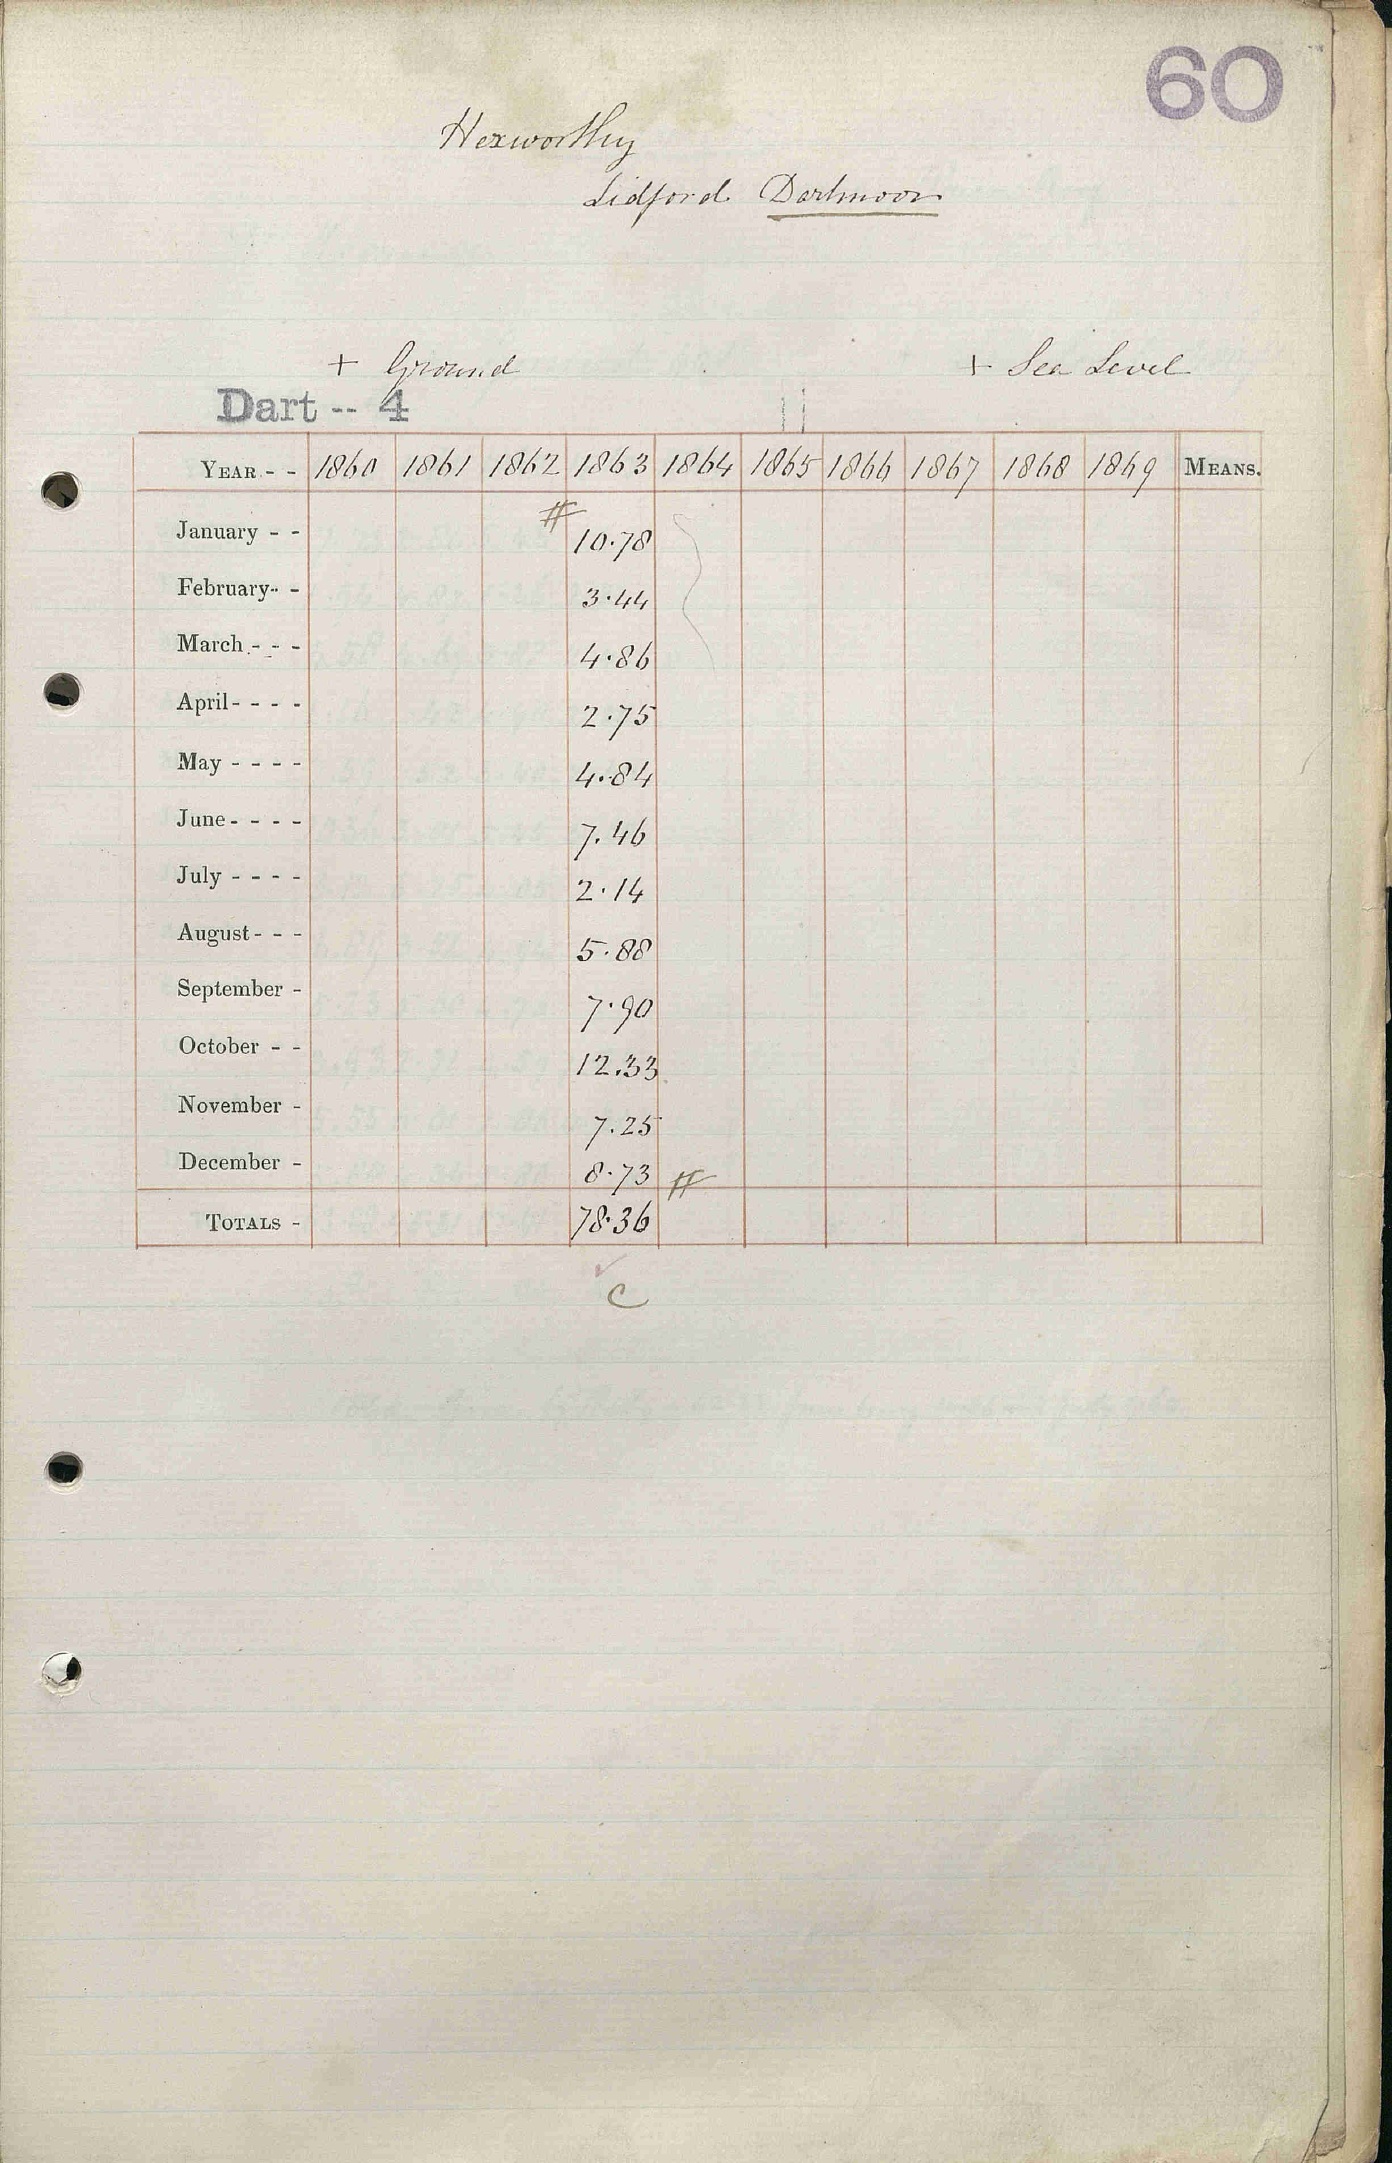 60
Hexworthy
Lidford Dartmoor
+ Ground + Sea Level
Dart -- 4
YEAR - - 1860 1861 1862 1863 1864 1865 1866 1867 1868 1869 MEANS.
#
January - - 10.78
February - - 3.44
March - - - 4.86
April - - - - 2.75
May - - - - 4.84
June - - - - 7.46
July - - - - 2.14
August - - - 5.88
September - 7.90
October - - 12.33
November - 7.25
December - 8.73 #
TOTALS - 78.36
C